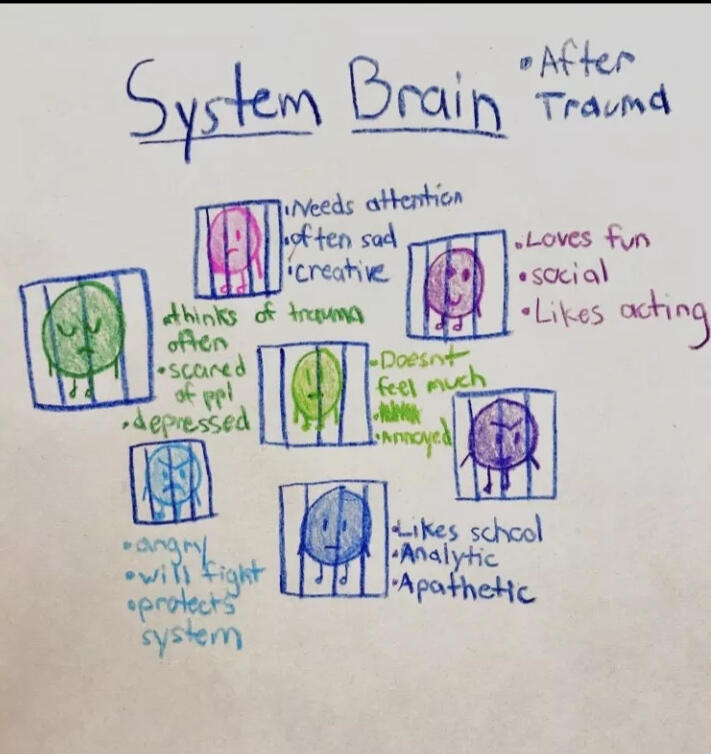 System Brain
• After
Trauma
• Needs attention
• often sad
• creative
• Loves fun
• social
• Likes acting
• thinks of trauma
often
• scared
of ppl
• depressed
• Doesnt
feel much
• Annoyed
• angry
• will fight
• protects
system
• Likes school
• Analytic
• Apathetic